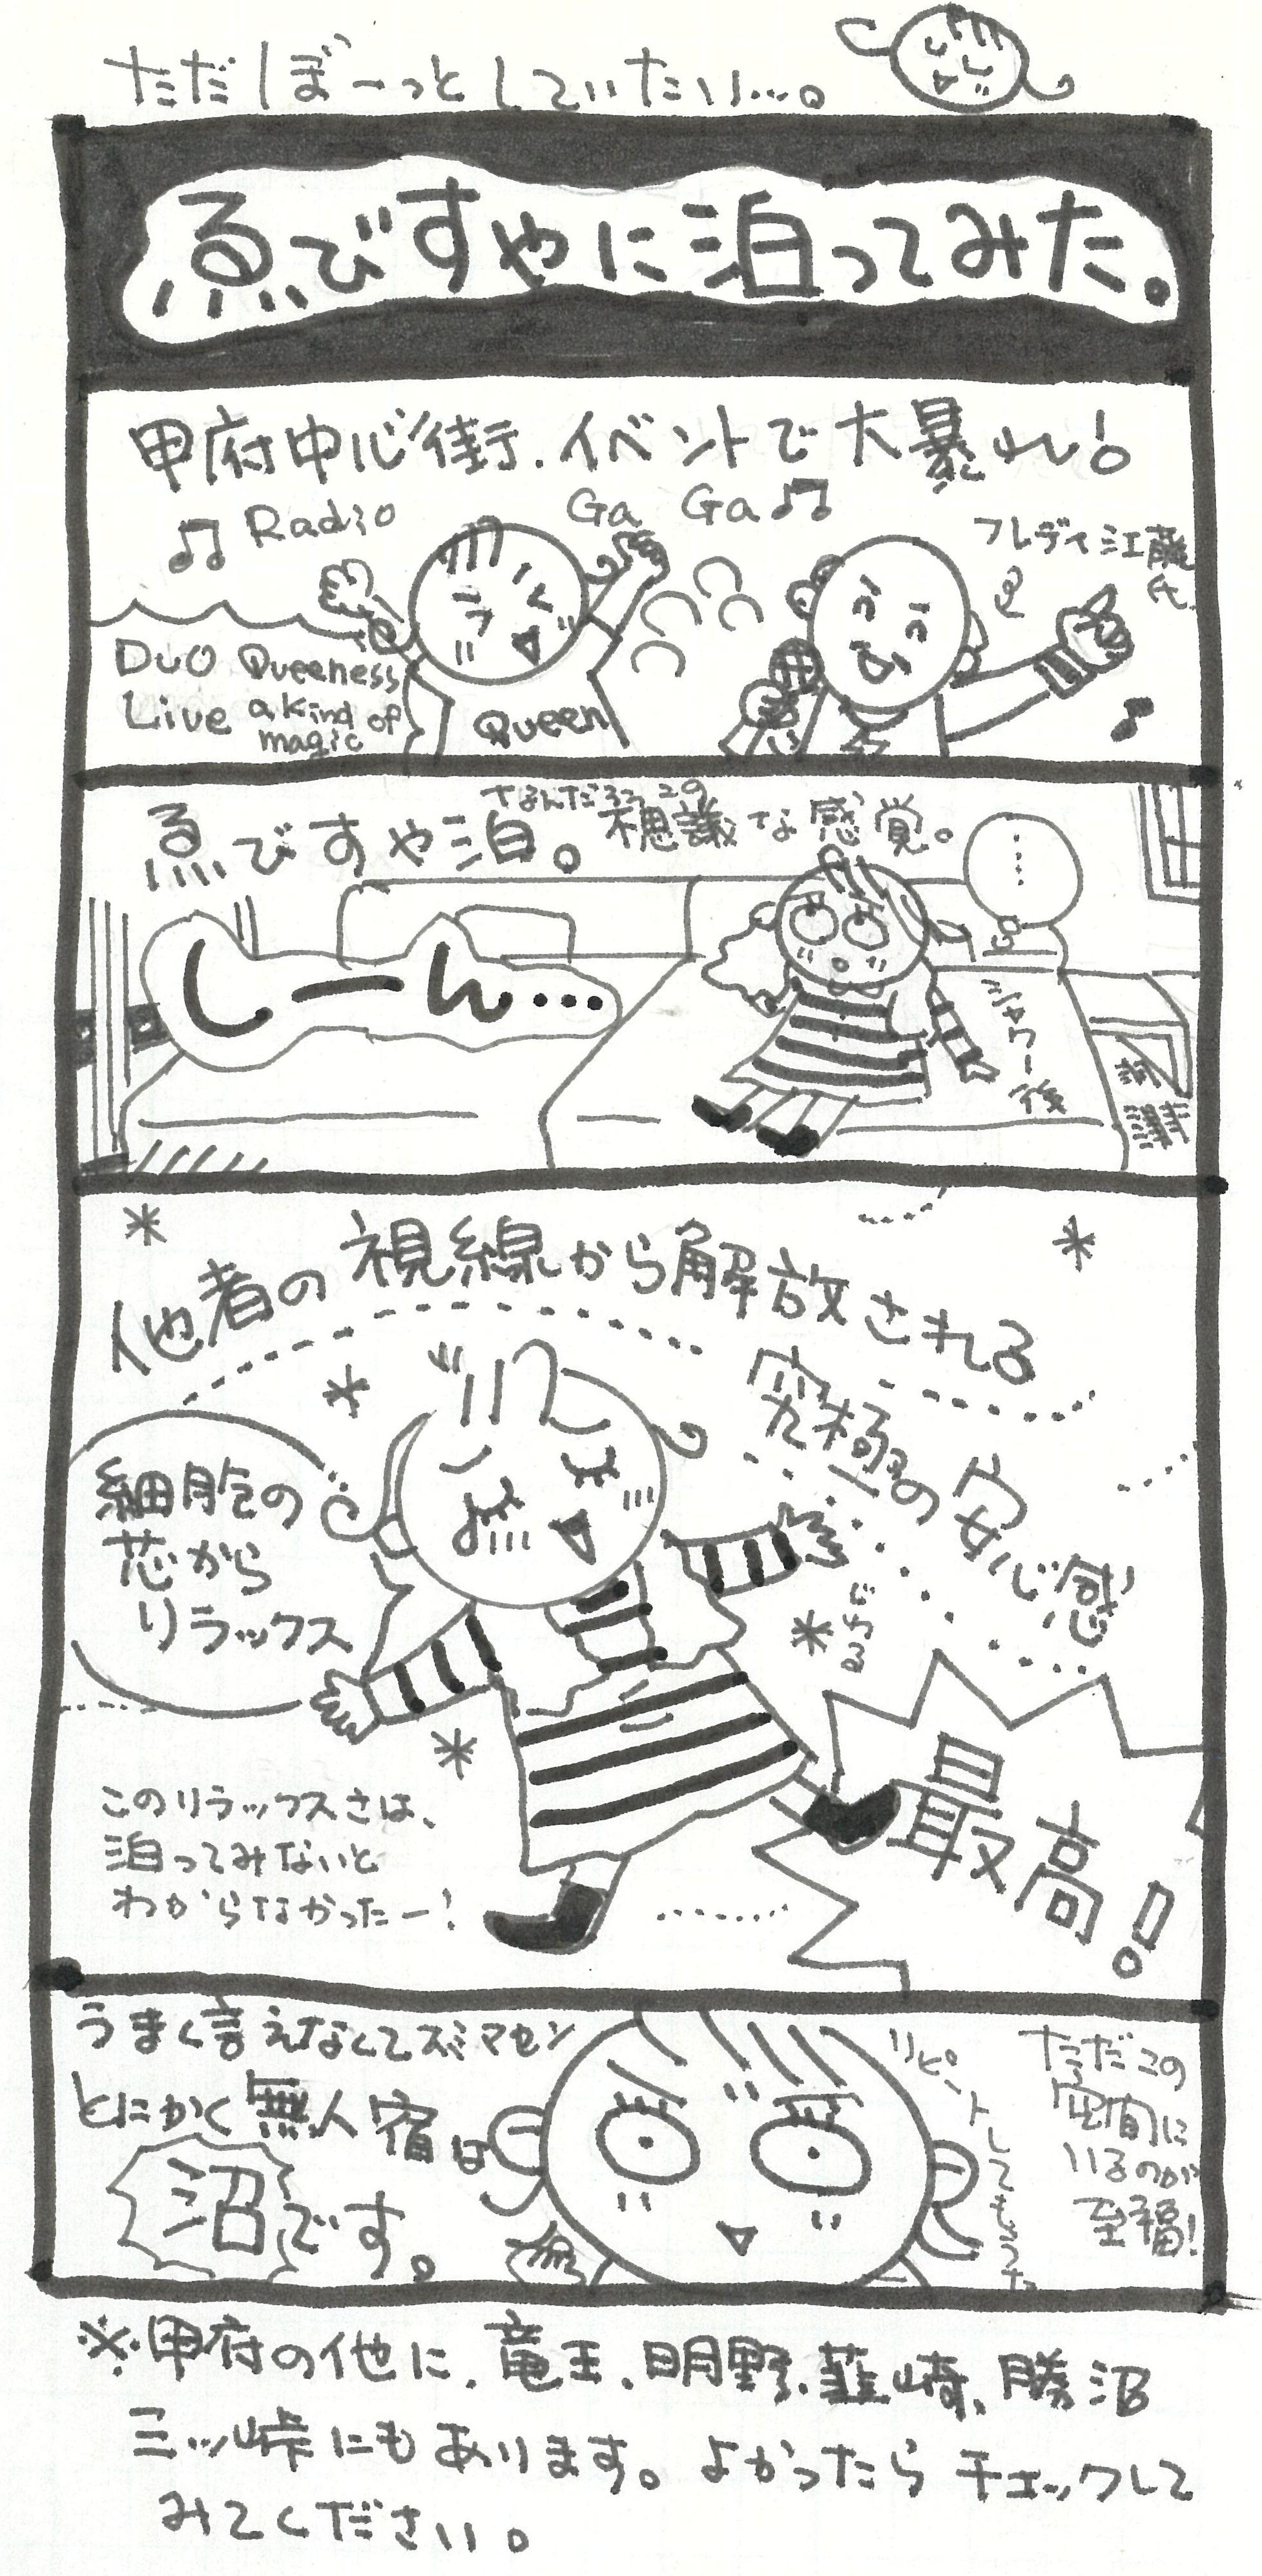 ただぼーっとしていたい…。
ゑびすやに泊ってみた。
甲府中心街、イベントで大暴れ!
♫ Radio Ga Ga♫
フレディ江藤氏
DUO Queeness
Live a kind of magic
Queen
ゑびすや泊。なんだろうこの不思議な感覚。
……
しーん…
シャワー後
他者の視線から解放される
究極の安心感
細胞の
芯から
リラックス
最高!
このリラックスさは、
泊ってみないと
わからなかったー!
うまく言えなくてスミマセン
とにかく無人宿は
沼です。
リピートしてもうた
ただこの
空間に
いるのが
至福!
※甲府の他に、竜王、明野、韮崎、勝沼
三ッ峠にもあります。よかったらチェックして
みてください。